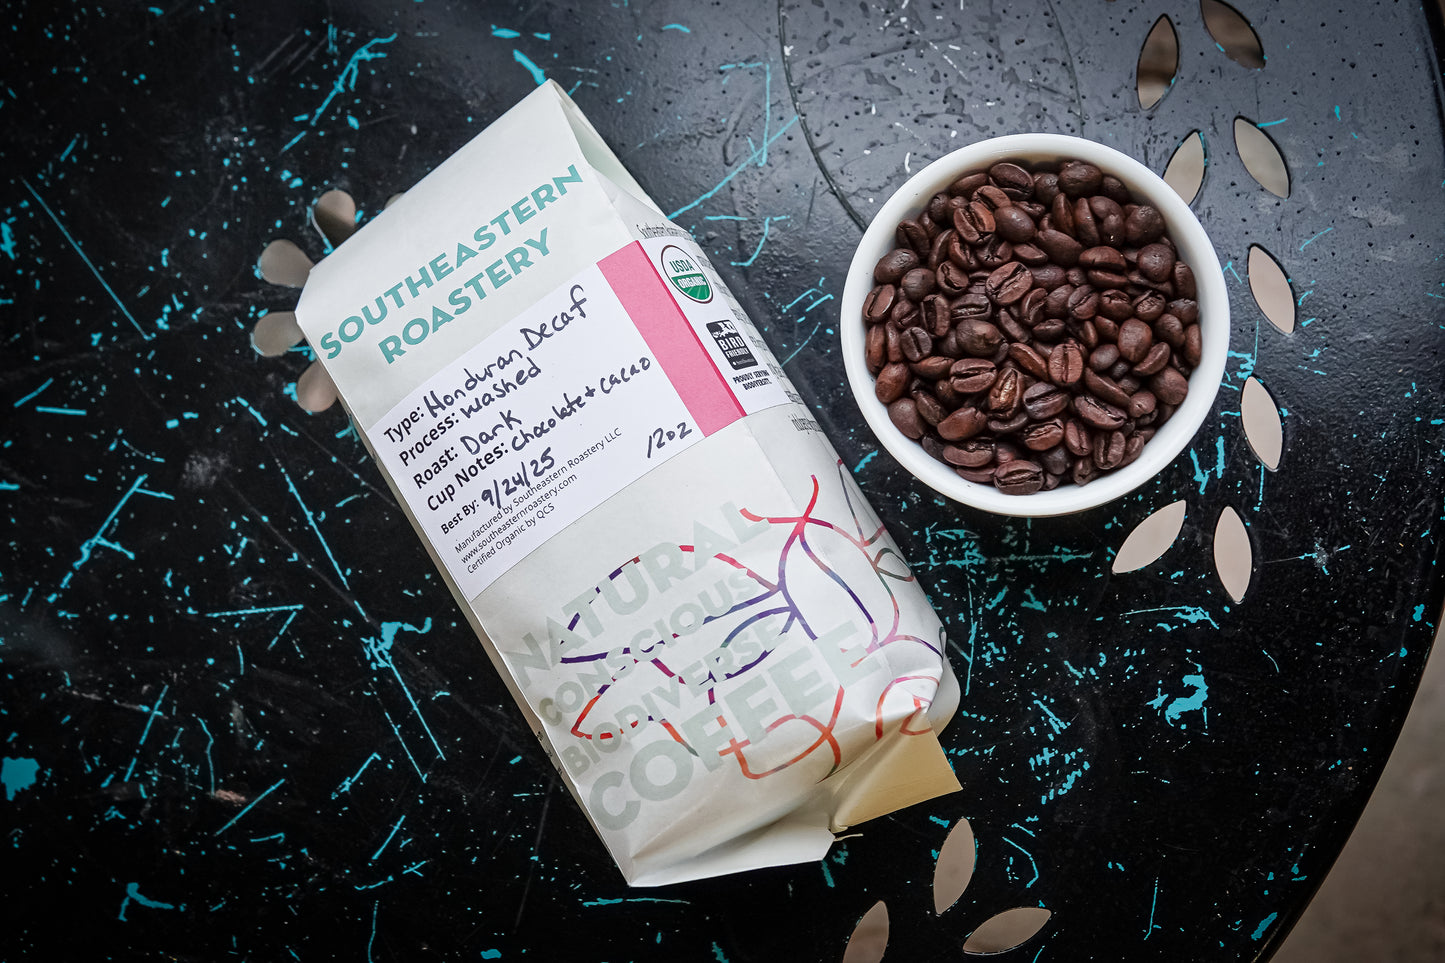 SOUTHEASTERN
ROASTERY
Type: Honduran Decaf
Process: washed
Roast: Dark
Cup Notes: chocolate + cacao
Best By: 9/24/25
12oz
Manufactured by Southeastern Roastery LLC
www.southeasternroastery.com
Certified Organic by QCS
USDA
ORGANIC
BIRD
FRIENDLY
PROUDLY SERVING
BIODIVERSITY.
NATURAL
CONSCIOUS
BIODIVERSE
COFFEE